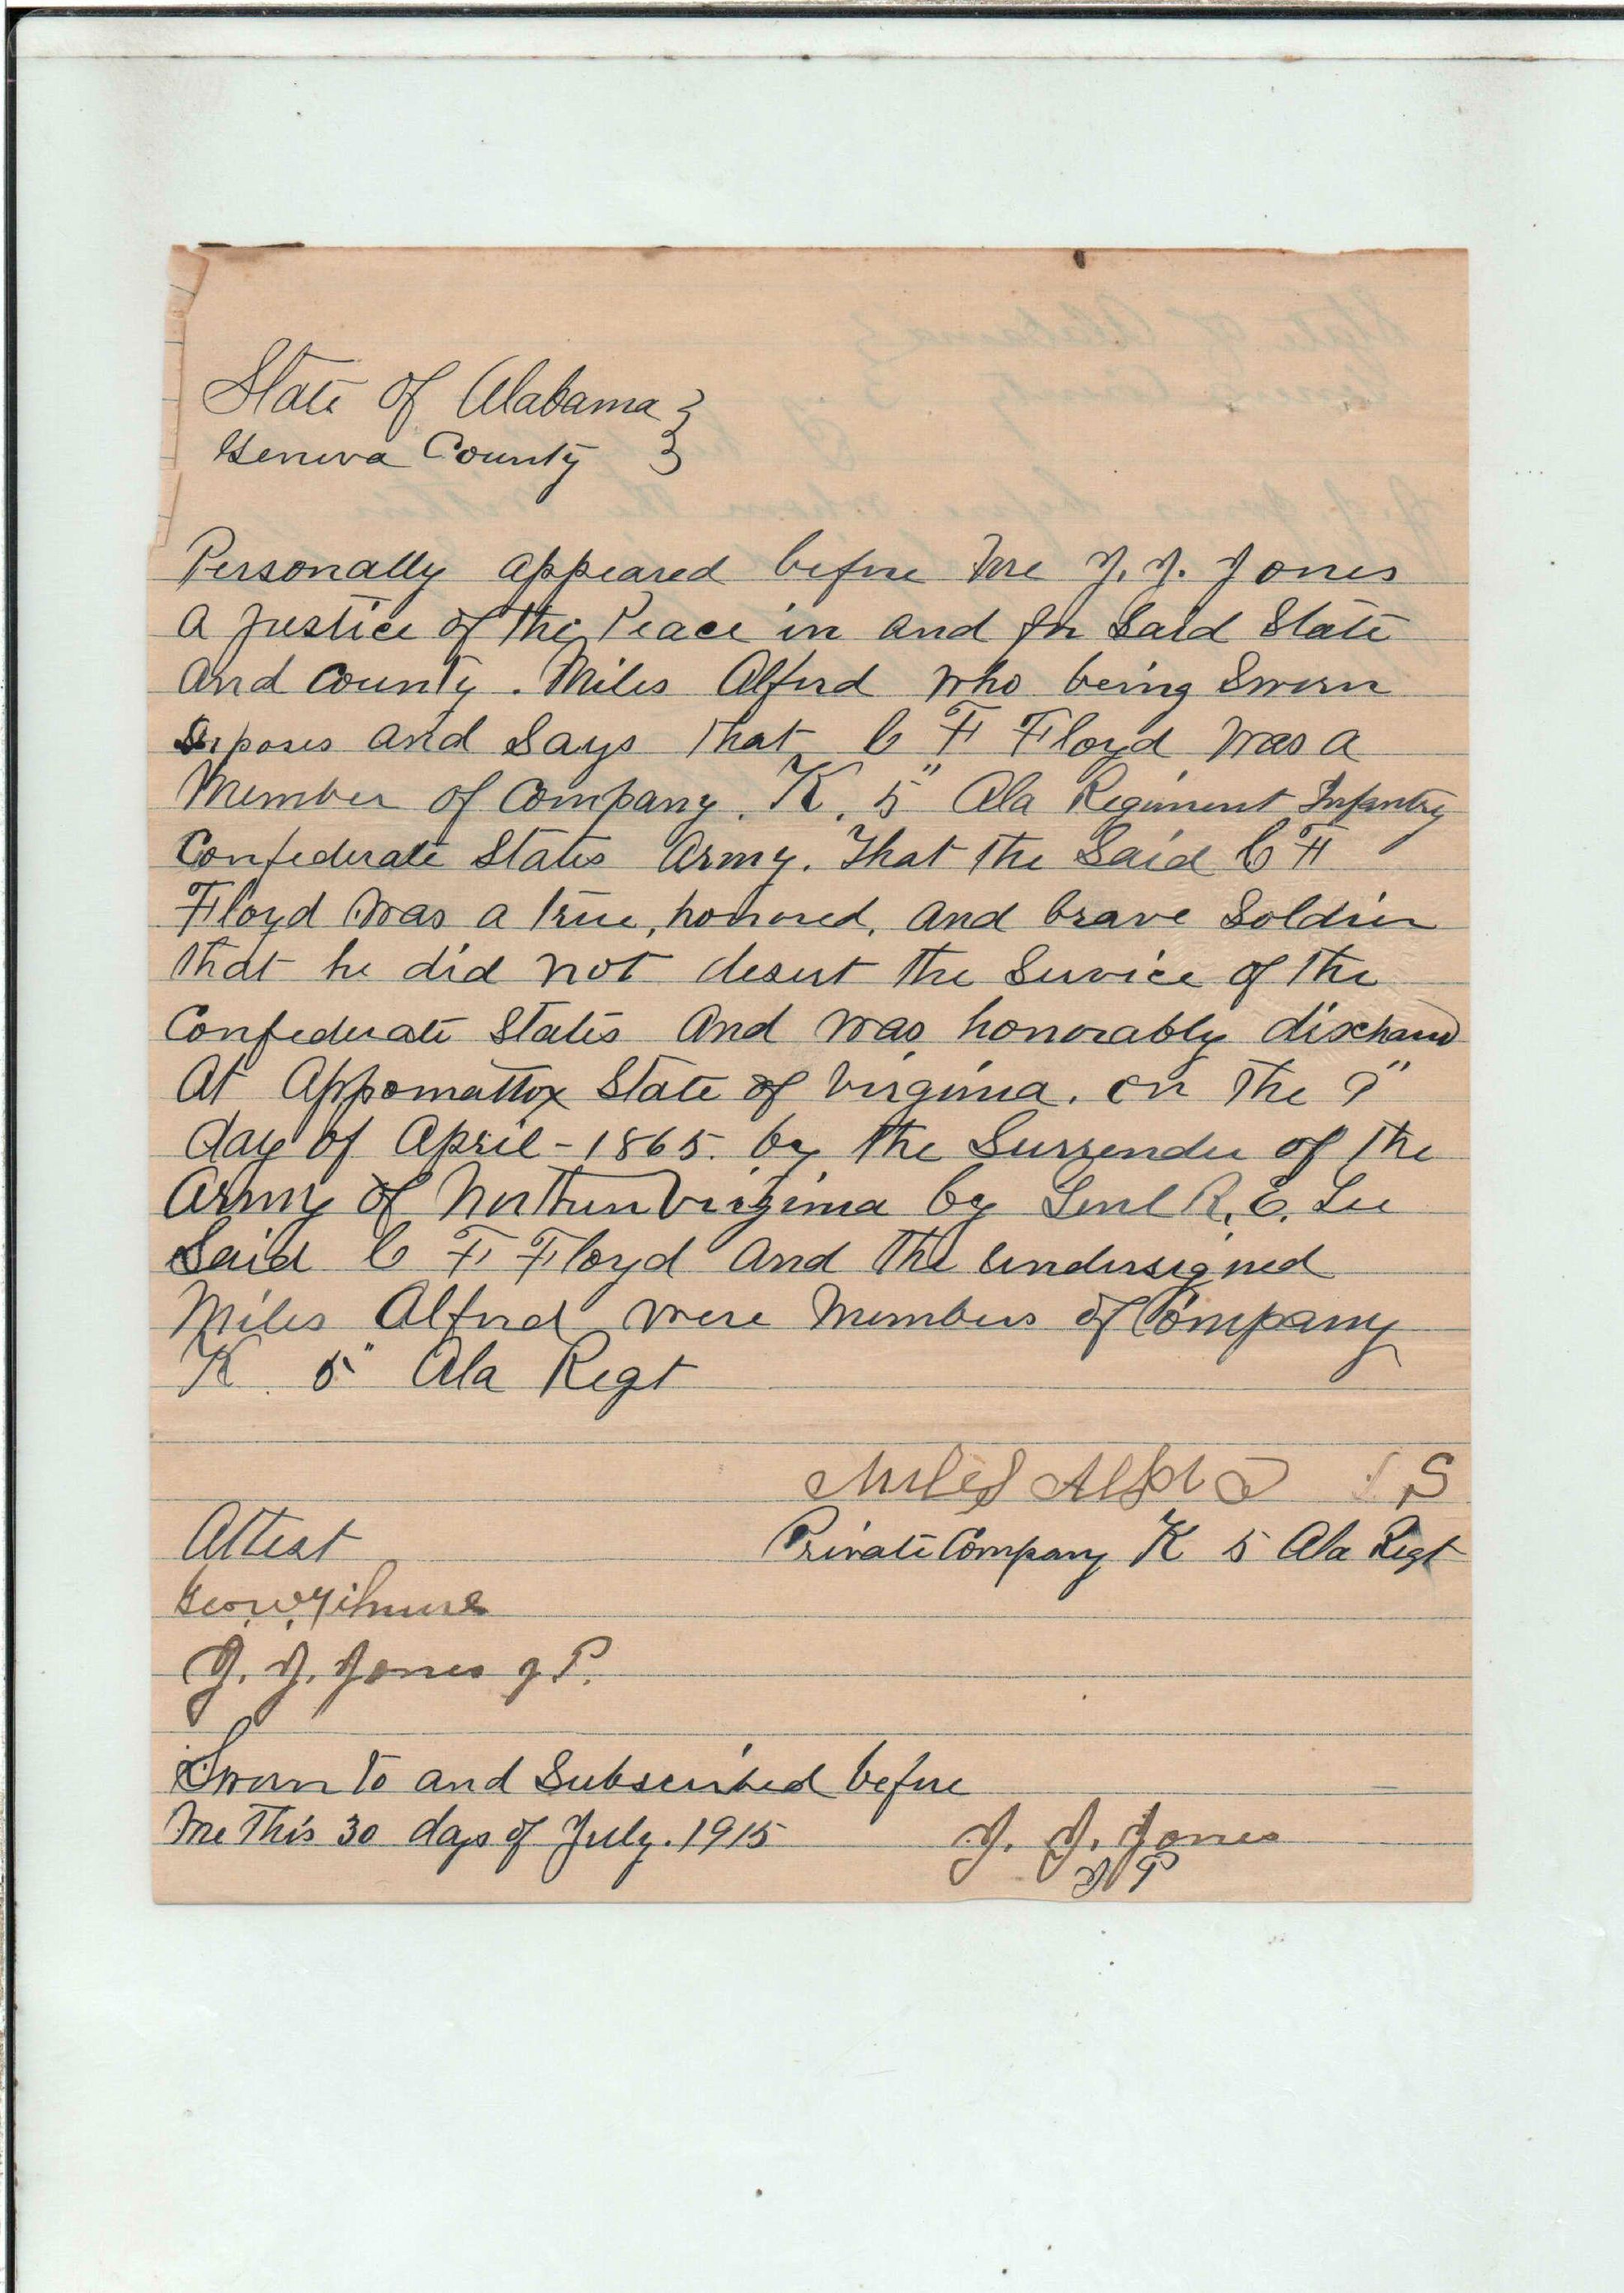 State of Alabama }
Geneva County }
Personally appeared before me J. J. Jones
a Justice of the Peace in and for Said State
and County. Miles Alford who being Sworn
deposes and Says that C F Floyd was a
Member of Company. K. 5" Ala Regiment Infantry
Confederate States Army. That the Said C F
Floyd was a true, honored, and brave Soldier
that he did not desert the Service of the
Confederate States and was honorably
At Appomattox State of Virginia. on the 9"
day of April - 1865. by the Surrender of the
Army of Northern Virginia by Genl R. E. Lee
Said C F Floyd and the undersigned
Miles Alford were Members of Company
K 5" Ala Regt
Miles Alford L S
Attest
Private Company K 5 Ala Regt
Geo. W.
J. J. Jones J P.
Sworn to and Subscribed before
Me This 30 days of July. 1915
J. J. Jones
J P